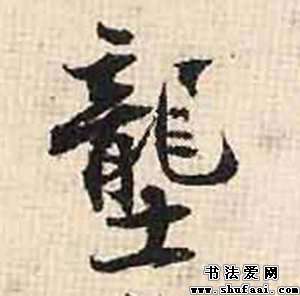 壟
书法爱网
www.shufaai.com